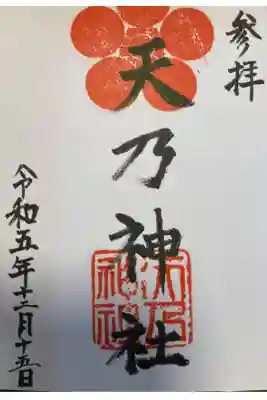 参拝
天乃神社
令和五年十二月十五日